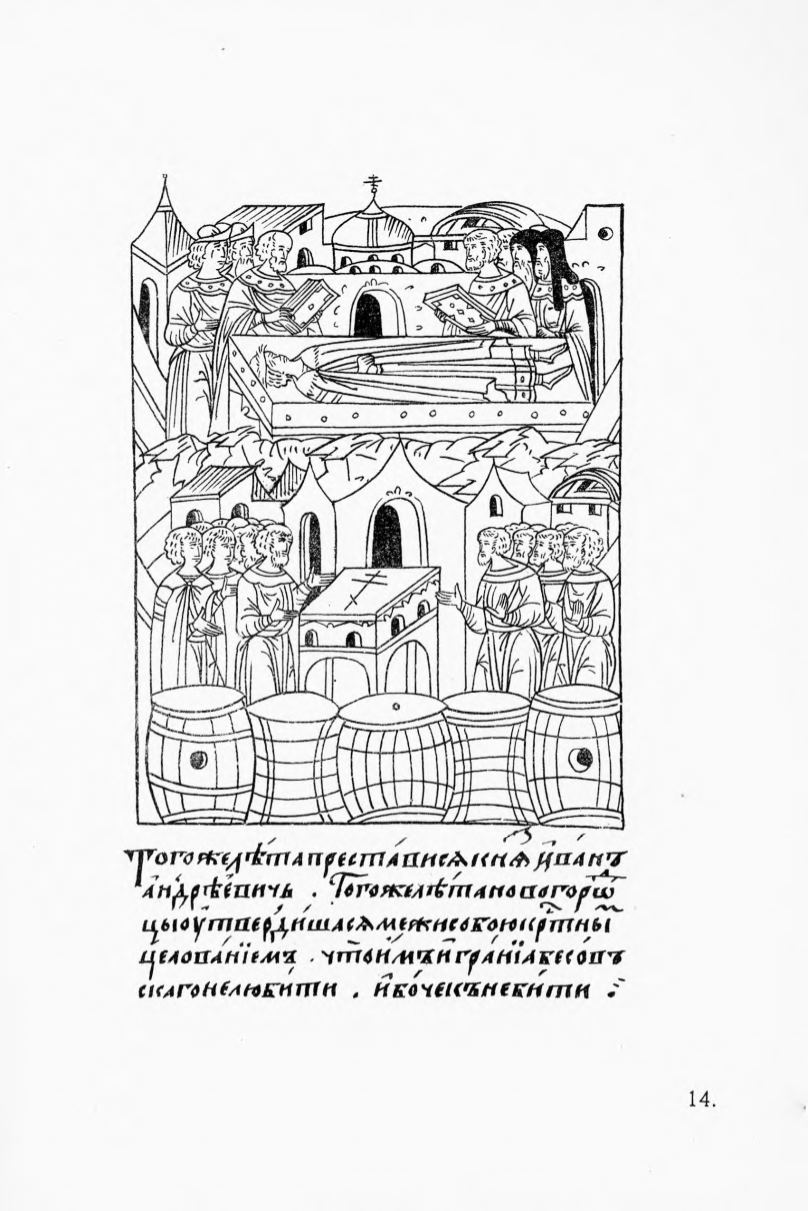 Тогожелѣтапрестависѧкнѧз҃ь и҆ва́нъ
а҆ндрѣ́евичь . Тогожелѣ́тановогоро́д
цыоу҆тверди́шасѧмежисобоюкрⷭ҇тны
целова́нїемъ . что́и҆мъи҆гра́нїѧбесов
скагонелюби́ти . и҆бо́чекънеби́ти :
14.